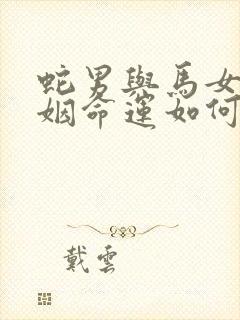 蛇男與馬女
姻命運如何
戴雲